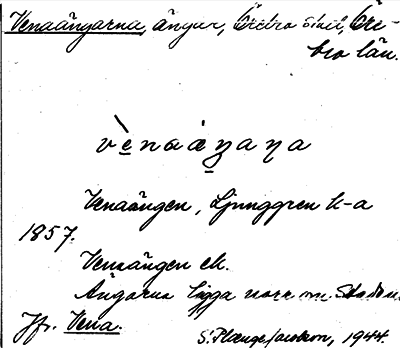 Venaängarna, ängar, Örebro stad, Öre-
bro län.
vènaáŋaŋa
Venaängen, Ljunggren k-a
1857.
Venaängen ek.
Ängarna ligga norr om staden.
Jfr. Vena.
1944.